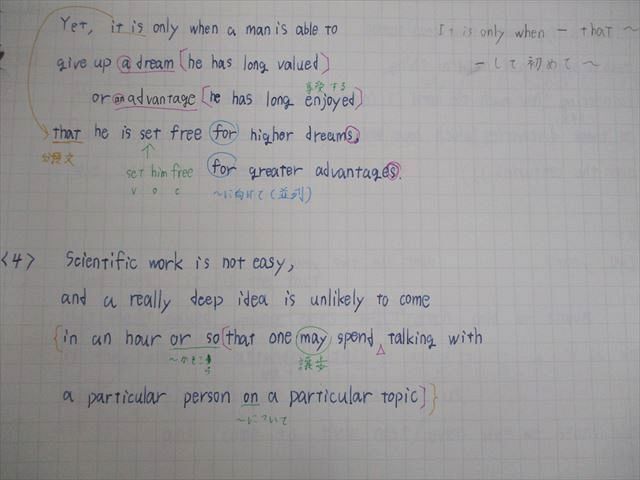 Yet, it is only when a man is able to
It is only when ー that ～
give up a dream [he has long valued]
ーして初めて～
享受する
or an advantage [he has long enjoyed]
that he is set free for higher dreams,
分裂文
set him free
for greater advantages.
V O C
～に向けて(並列)
<4> Scientific work is not easy,
and a really deep idea is unlikely to come
{in an hour or so [that one may spend talking with
～かそこら
譲歩
a particular person on a particular topic]}
～について